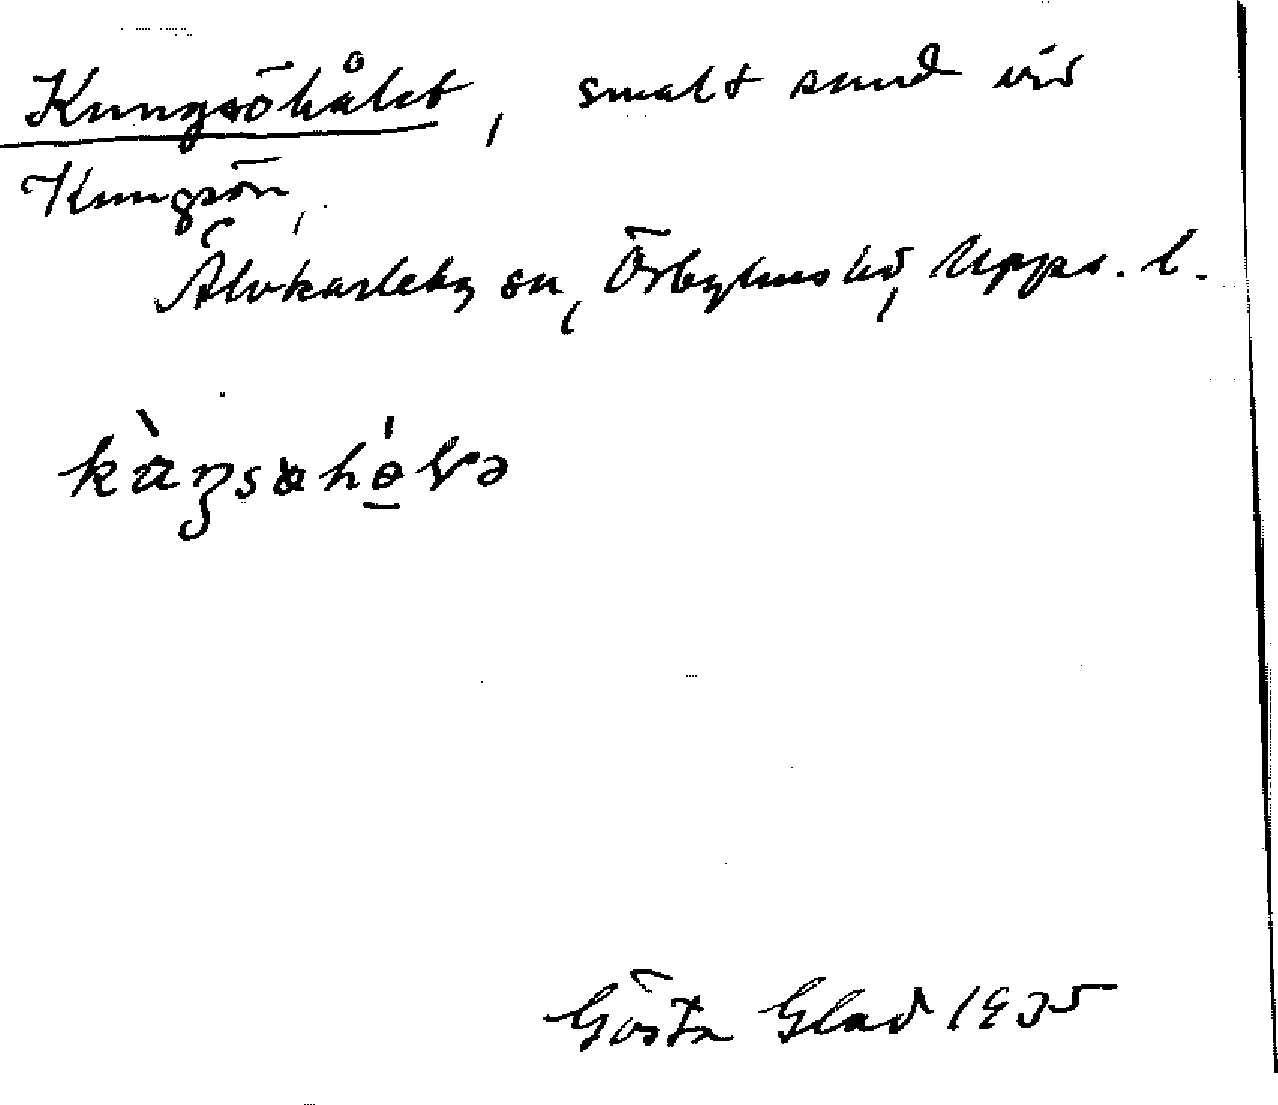 Kungsöhålet, smalt sund vid
Kungsön,
Älvkarleby sn, Örbyhus hd, Upps. l.
Gösta Glad 1935